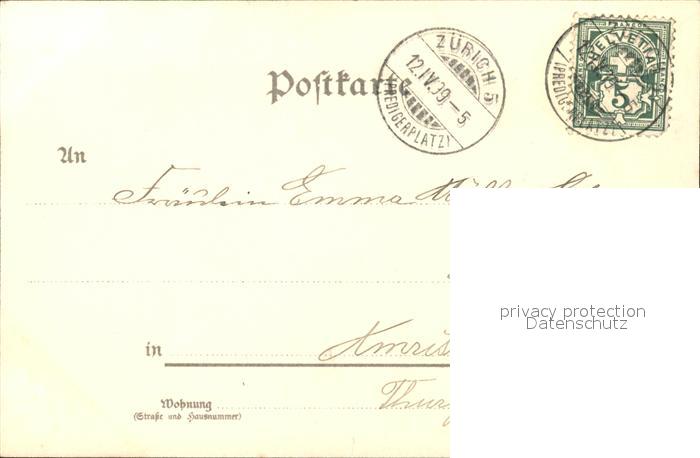 Postkarte
ZÜRICH 5
12.IV.99-5
(PREDIGERPLATZ)
FRANCO
HELVETIA
5
An
Fräulein Emma
in
Wohnung
(Straße und Hausnummer)
privacy protection
Datenschutz